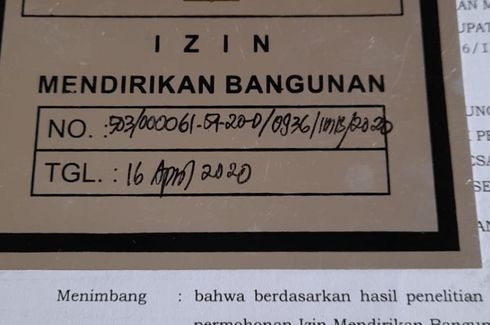 I Z I N
MENDIRIKAN BANGUNAN
NO. : 503/000061-59-20-D/0936/IMB/2020
TGL. : 16 April 2020
Menimbang : bahwa berdasarkan hasil penelitian
permohonan Izin Mendirikan Bangun